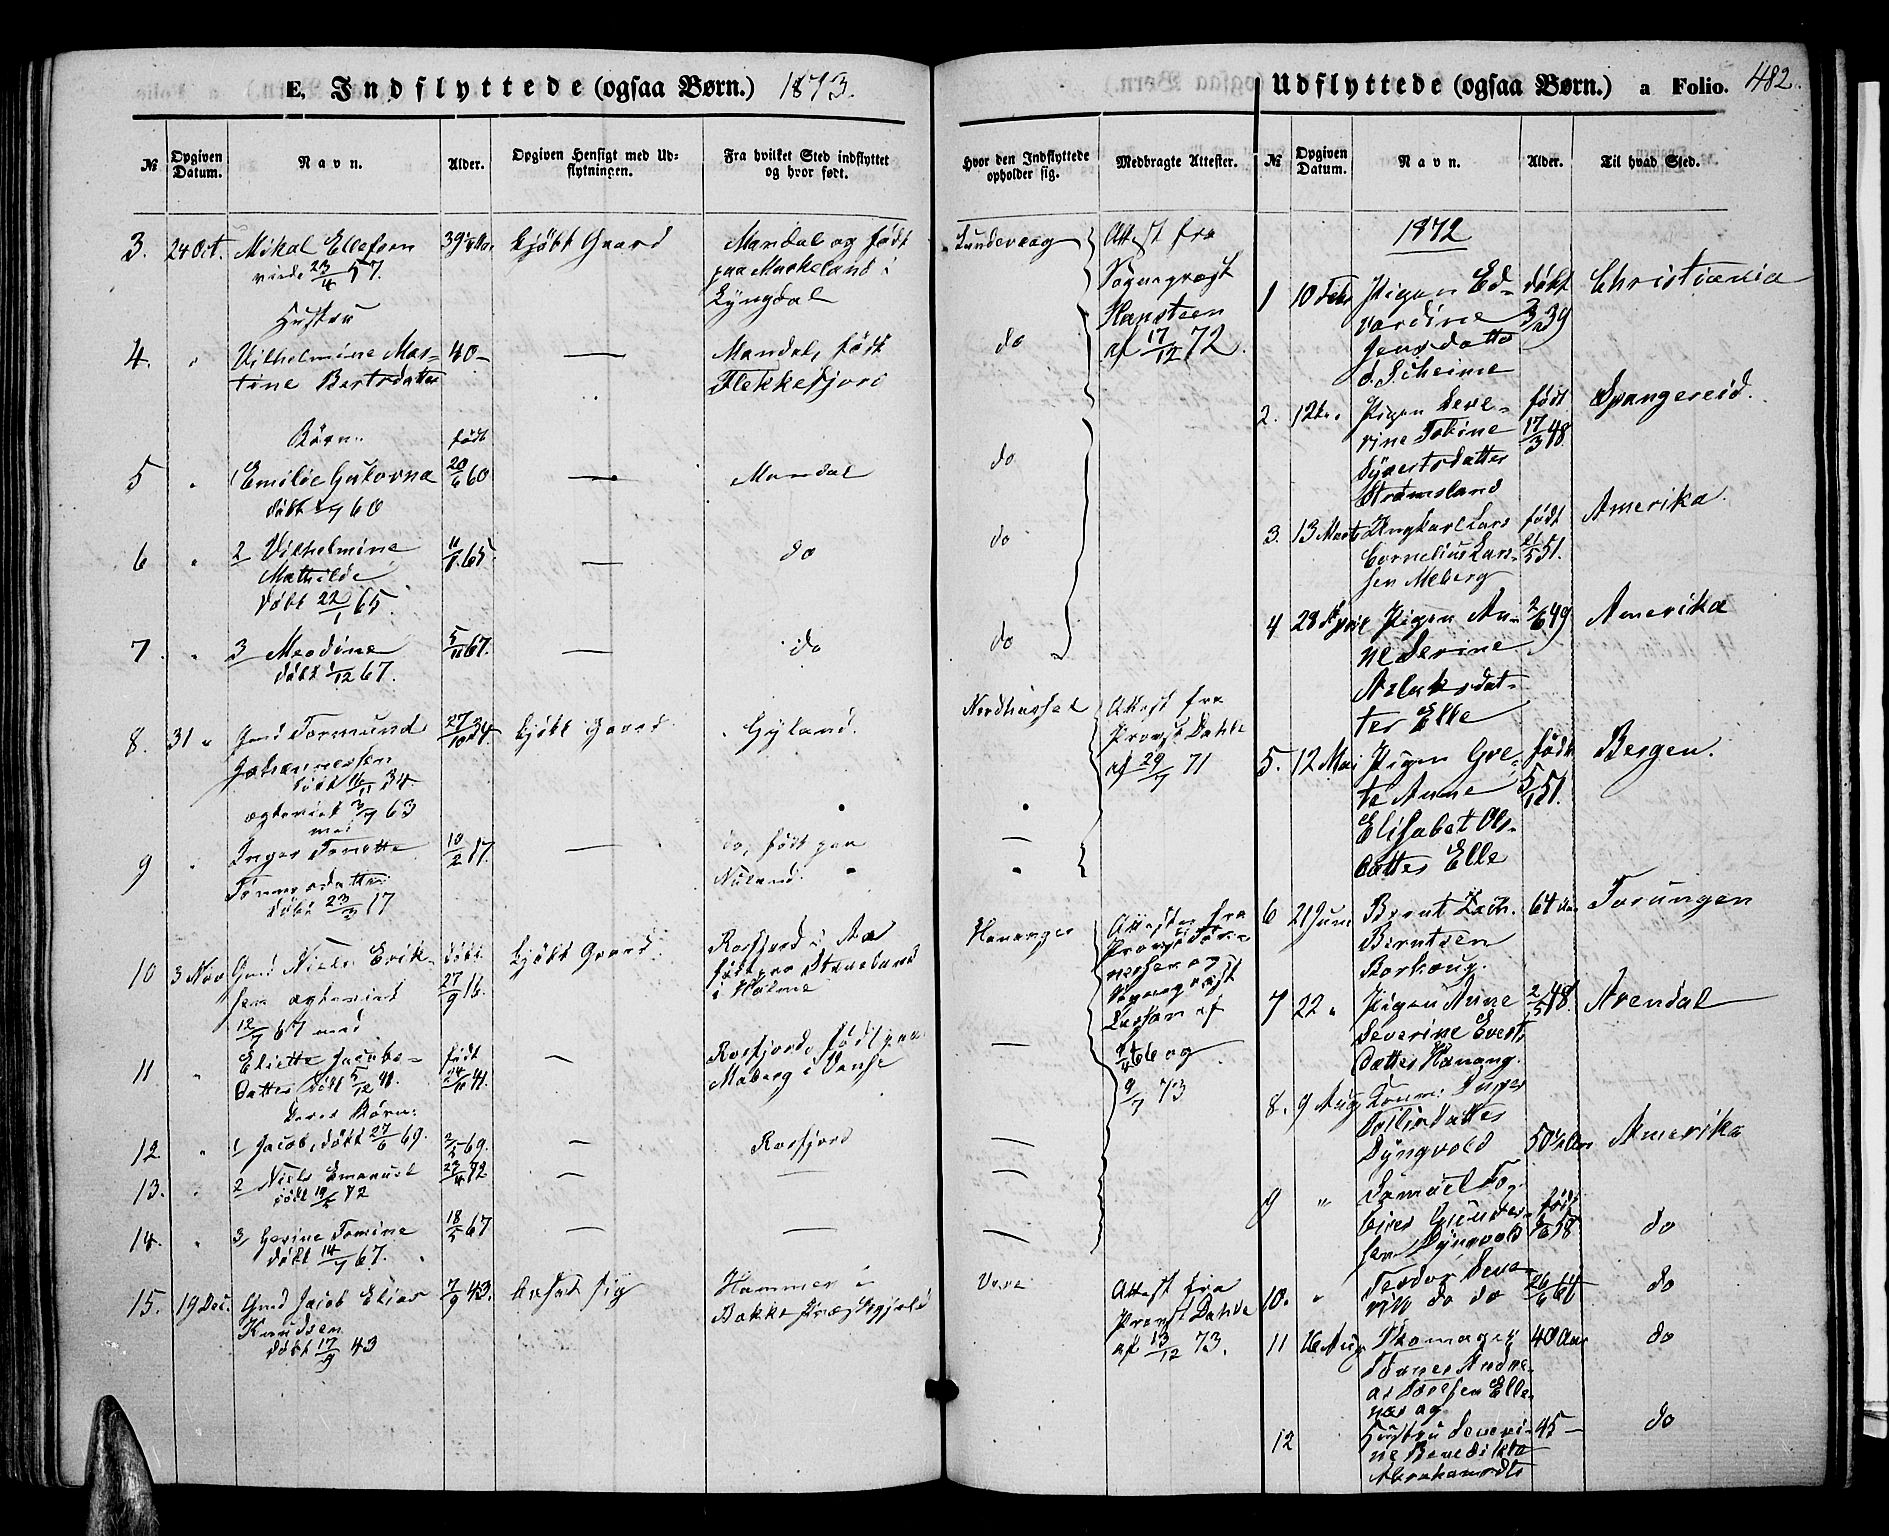 E. Indflyttede (ogsaa Børn.) 1873.
№
Opgiven Datum.
Navn.
Alder.
Opgiven Hensigt med Udflytningen.
Fra hvilket Sted indflyttet og hvor født.
3. 24 Oct. Mikal Ellefsen Kjøbt Gaard Mandal og født
viede 23/4 57. paa Muskeland i
Lyngdal
Hustru
4. Vilhelmine Mar- 40 — Mandal, født
tine Berts datter Flekkefjord
Børn født
5 Emilie Gustovna 20/6 60 — Mandal
døbt /7 60
6 2 Vilhelmine 65. — do
Mathilde
døbt 22/1 65.
7. 3 5/11 67. — do
døbt 1/12 67.
8. 31 " Gmd Tormund 27/10 34. Kjøbt Gaard Gyland.
Johannessen
døbt 16/11 34.
ægteviet 3/7 63
med
9 Inger Tonette 10/2 17. — do, født paa
Tønnesdatter Nuland.
døbt 23/3 17
10 3 Nov Gmd Niels Erik- døbt Kjøbt Gaard. Rosfjord i Aa
sen ægteviet 27/9 16. født paa Steneland
12/7 67 med i Holme
11 Eliette Jacobs- født — Rosfjord, født paa
datter døbt 5/12 41. 24/11 41. Meberg i Vanse
Deres Børn:
12. 1 Jacob, døbt 27/6 69. 69. — Rosfjord
13. 2 Niels Emanuel 23/4 72 — —
døbt 72
14. 3, Gerine Tomine 18/5 67 — —
døbt 14/7 67.
15. 19 Dec. Gmd Jacob Elias 7/9 43. bosat sig Hammer i
Knudsen Bakke Præstegjeld
døbt 17/9 43
Hvor den Indflyttede opholder sig.
Medbragte Attester.
Lundevaag Attest fra
Sognepræst
Hansteen
do af 17/12 72.
do
do
do
Nordhassel Attest fra
Provst Dahle
af 29/7 71
—
Hananger Attester fra
Provst
og
Sognepræst
af
— 66 og
9/7 73
—
—
—
Vere Attest fra
Provst Dahle
af 13/12 73.
Udflyttede (ogsaa Børn.) a Folio. 482.
№
Opgiven Datum.
Navn.
Alder.
Til hvad Sted.
1872
1 10 Febr Pigen Ed- døbt Christiania
vardine 3/3 39
Jensdatter
d. Scheime
2. 12 Pigen Seve- født Spangereid.
rine Tobine 17/3 48
Syvertsdatter
Strømsland
3. 13 Marts Ungkarl Lars født Amerika.
Cornelius Lars- 21/5 51.
sen Meberg
4 28 April Pigen An- 2/6 49 Amerika
ne Serine
Aslaksdat-
ter Elle
5. 12 Mai Pigen Gre- født Bergen.
te Anne 5/12 51.
Elisabet Ols-
datter Elle
6 21 Juni Bernt Zach. 64 Aar Torungen
Berntsen
Borhaug.
7 22 " Pigen Anne 2/5 48. Arendal
Severine Everts
datter Hanang.
8. 9 Aug Inger
datter
Dyngvold 50 1/2 Aar Amerika
9 " Samuel To-
bias Gunder- født
sen Dyngvold 58 do
10. " Teodor Seve-
rin do do 26/6 64 do
11 16 Aug Thomas 40 Aar do
Andre-
as
og
12 Hustru Severi- 45 — do
ne Benedikte
Abrahamsdtr